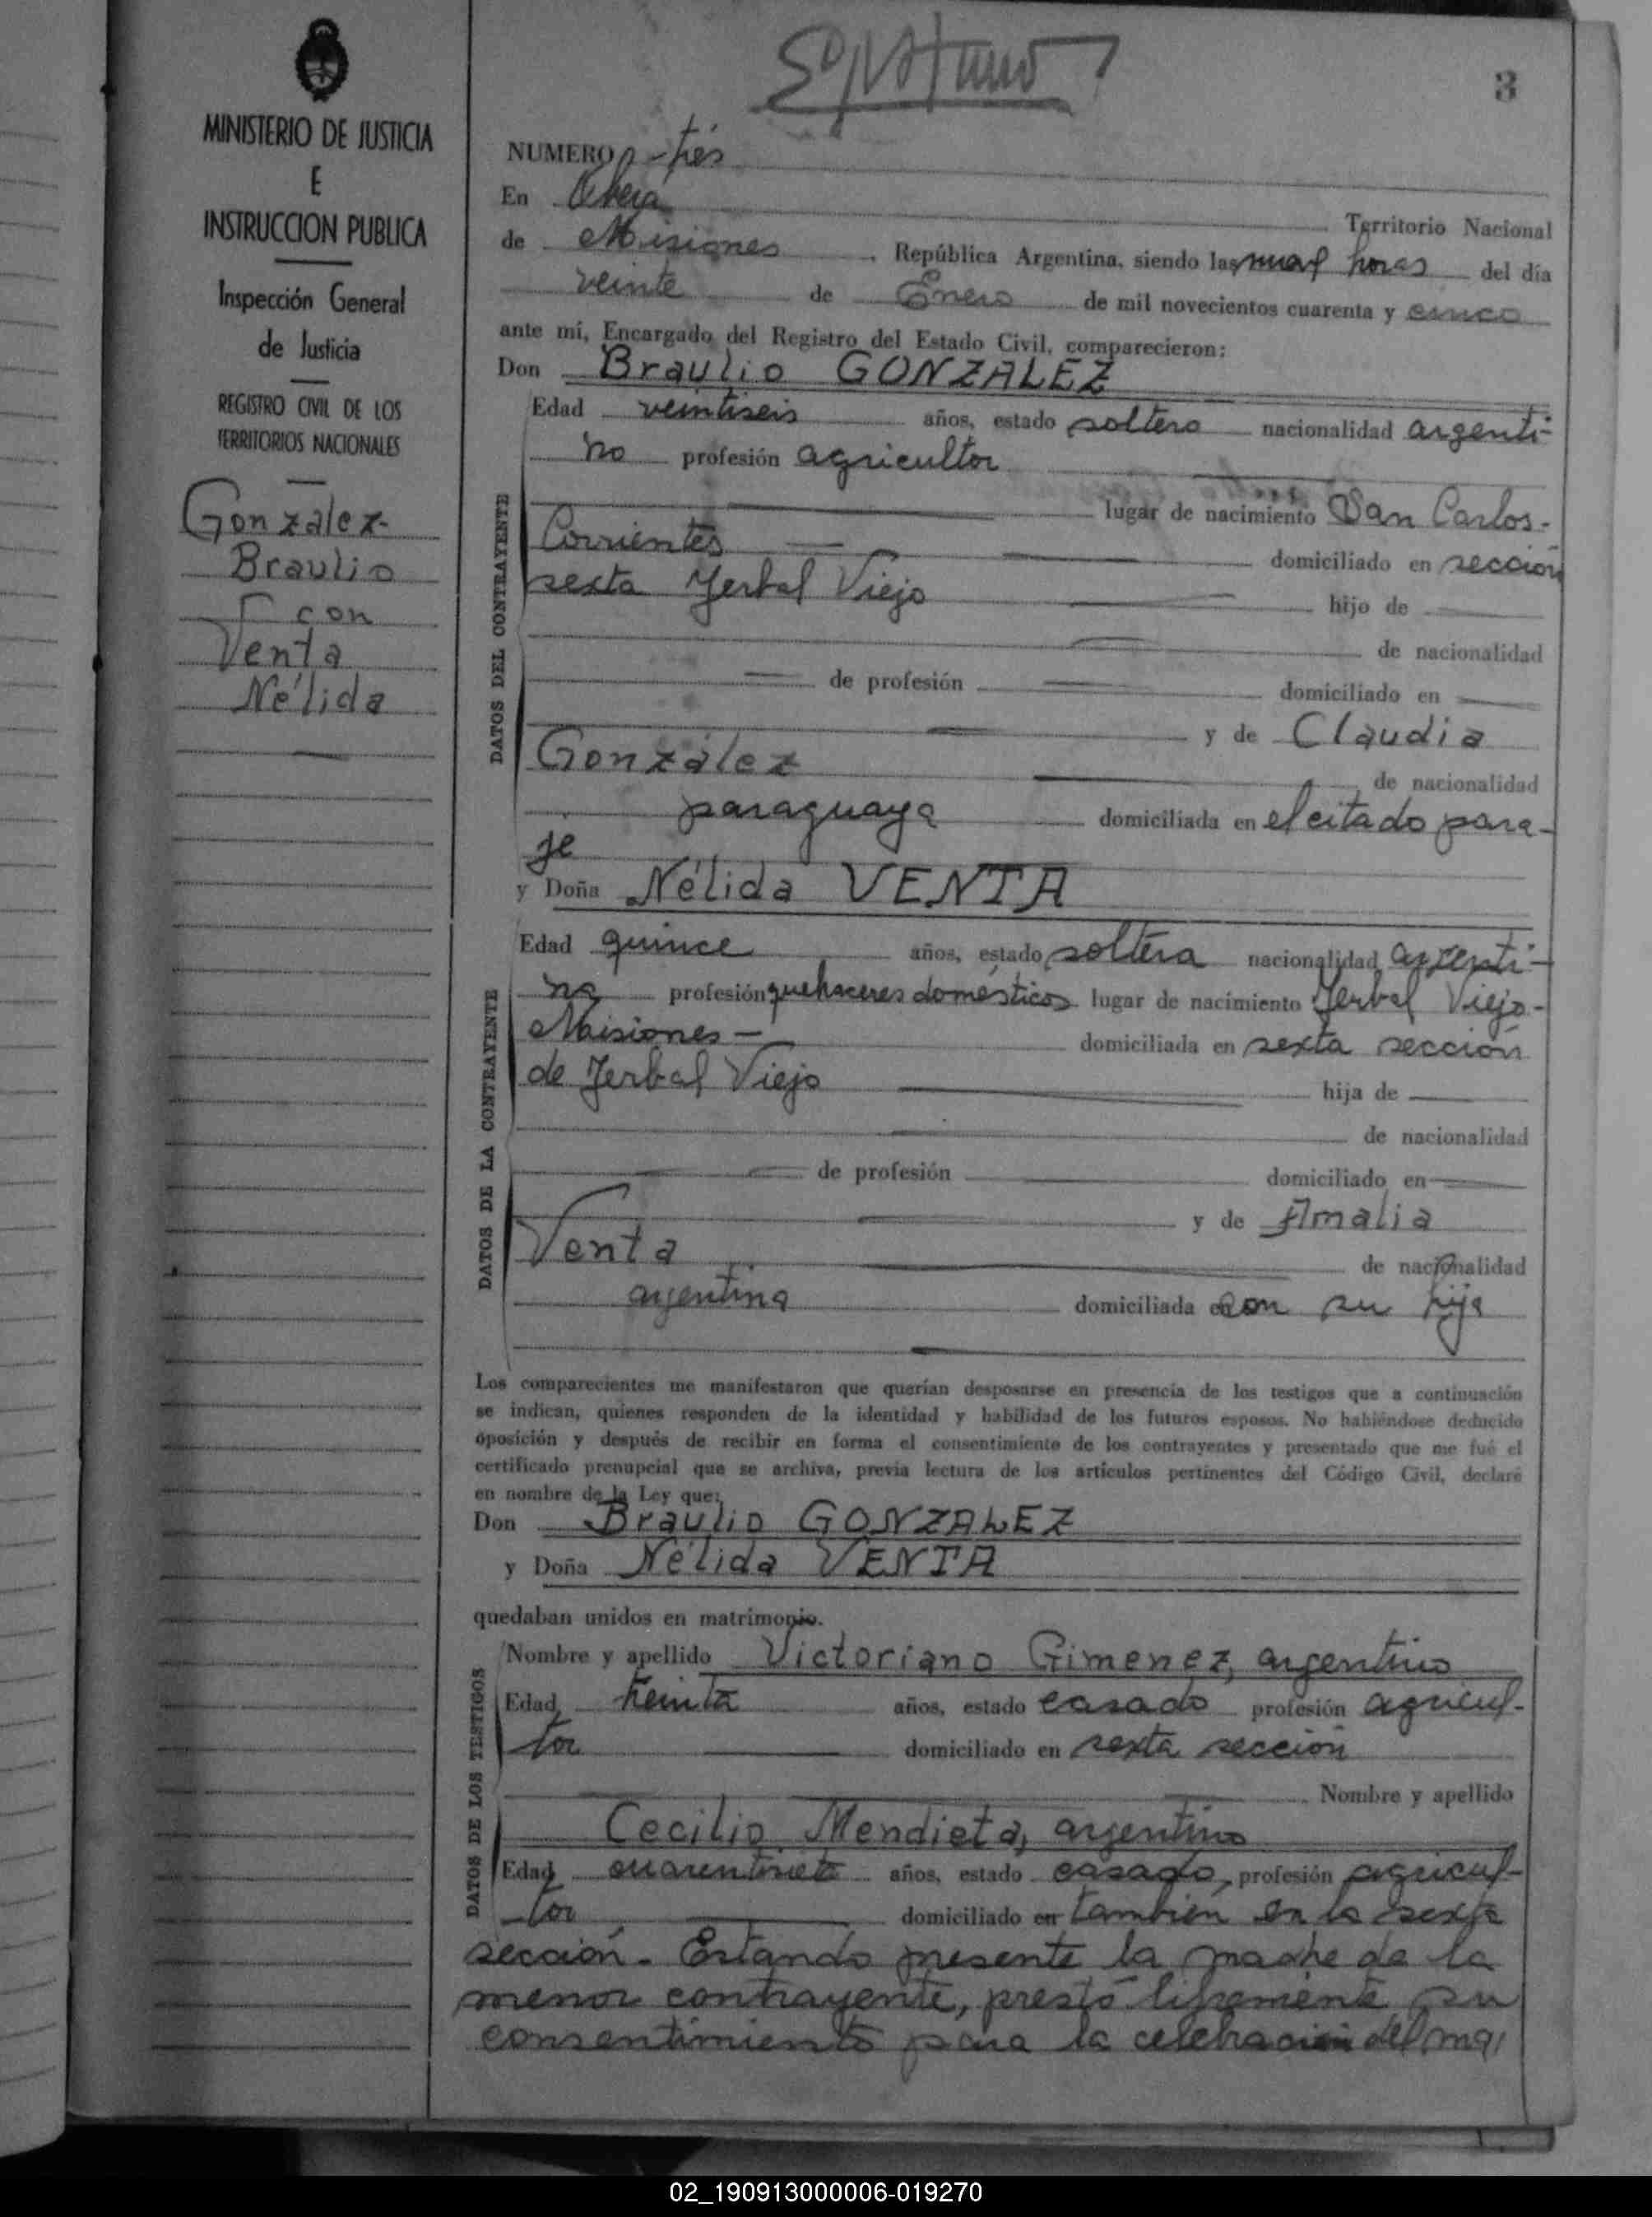 3
MINISTERIO DE JUSTICIA
E
INSTRUCCION PUBLICA
Inspección General
de Justicia
REGISTRO CIVIL DE LOS
TERRITORIOS NACIONALES
Gonzalez-
Braulio
con
Venta
Nélida
NUMERO - tres
En Oberá Territorio Nacional
de Misiones, República Argentina, siendo las nueve horas del día
veinte de Enero de mil novecientos cuarenta y cinco
ante mí, Encargado del Registro del Estado Civil, comparecieron:
Don Braulio GONZALEZ
DATOS DEL CONTRAYENTE
Edad veintiseis años, estado soltero nacionalidad argenti-
no profesión agricultor
lugar de nacimiento San Carlos-
Corrientes — domiciliado en sección
sexta Yerbal Viejo hijo de
de nacionalidad
de profesión domiciliado en
y de Claudia
González de nacionalidad
paraguaya domiciliada en el citado para-
je
y Doña Nélida VENTA
DATOS DE LA CONTRAYENTE
Edad quince años, estado soltera nacionalidad argenti-
na profesión quehaceres domésticos lugar de nacimiento Yerbal Viejo-
Misiones — domiciliada en sexta sección
de Yerbal Viejo hija de
de nacionalidad
de profesión domiciliado en
y de Amalia
Venta de nacionalidad
argentina domiciliada en con su hija
Los comparecientes me manifestaron que querían desposarse en presencia de los testigos que a continuación
se indican, quienes responden de la identidad y habilidad de los futuros esposos. No habiéndose deducido
oposición y después de recibir en forma el consentimiento de los contrayentes y presentado que me fué el
certificado prenupcial que se archiva, previa lectura de los artículos pertinentes del Código Civil, declaré
en nombre de la Ley que:
Don Braulio GONZALEZ
y Doña Nélida VENTA
quedaban unidos en matrimonio.
DATOS DE LOS TESTIGOS
Nombre y apellido Victoriano Gimenez, argentino
Edad treinta años, estado casado profesión agricul-
tor domiciliado en sexta sección
Nombre y apellido
Cecilio Mendieta, argentino
Edad años, estado casado, profesión agricul-
tor domiciliado en también en la sexta
sección. Estando presente la madre de la
menor contrayente, prestó libremente su
consentimiento para la celebración del ma
02_190913000006-019270